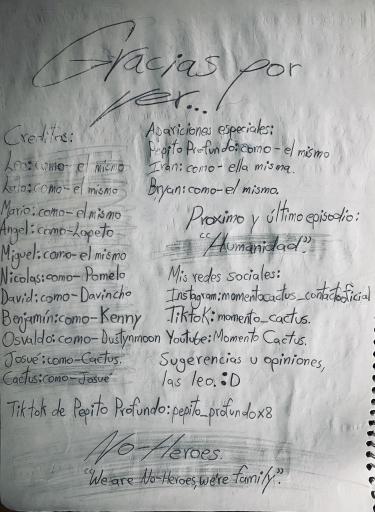 Gracias por
ver...
Creditos:
Leo:como-el mismo
Karo:como-el mismo
Mario:como-el mismo
Angel:como-Lopeto
Miguel:como-el mismo
Nicolas:como-Pomelo
David:como-Davincho
Benjamin:como-Kenny
Osvaldo:como-Dustynmoon
Josue:como-Cactus.
Cactus:como-Josue
Apariciones especiales:
Pepito Profundo:como-el mismo
Iran:como-ella misma.
Bryan:como-el mismo.
Proximo y último episodio:
"Humanidad."
Mis redes sociales:
Instagram:momentocactus_contactooficial
Tiktok:momento_cactus.
Youtube:Momento Cactus.
Sugerencias u opiniones,
las leo.:D
Tiktok de Pepito Profundo:pepito_profundox8
No-Heroes.
"We are No-Heroes,we're family."